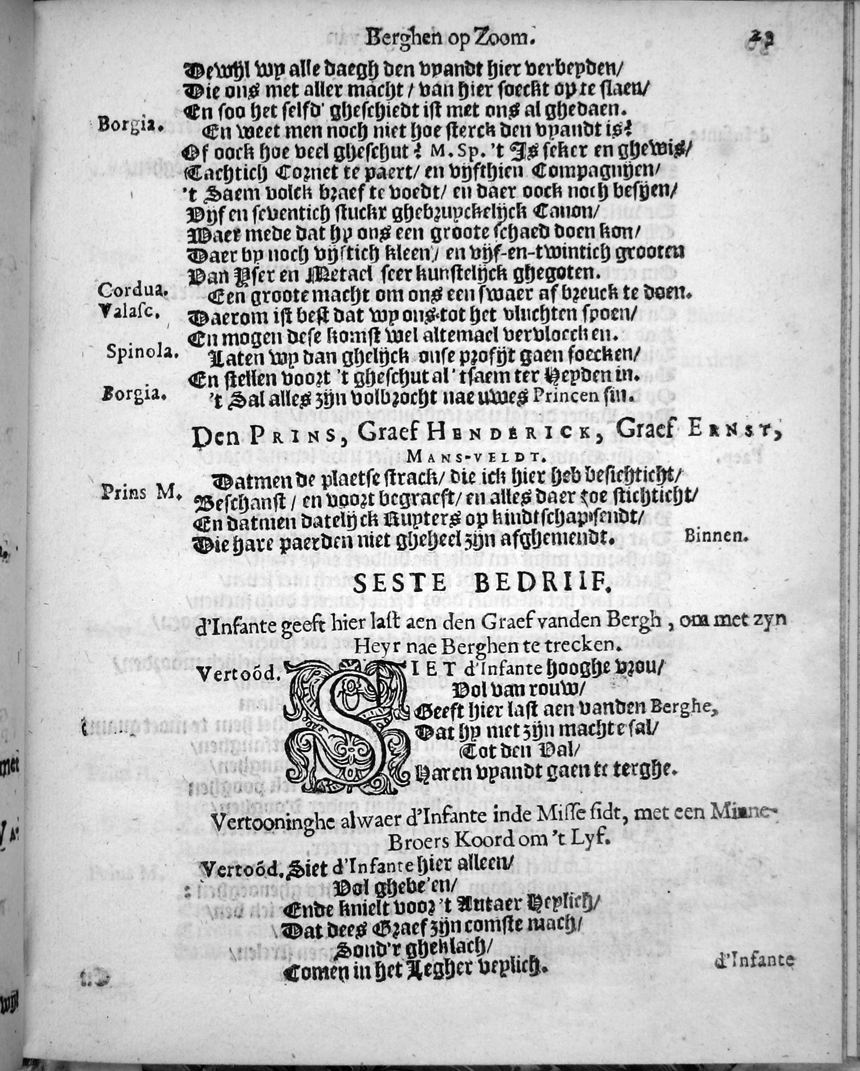 Berghen op Zoom. 29
Dewijl wy alle daegh den vyandt hier verbeyden/
Die ons met aller macht / van hier soeckt op te slaen/
En soo het selfd' gheschiedt ist met ons al ghedaen.
Borgia. En weet men noch niet hoe sterck den vyandt is?
Of oock hoe veel gheschut? M. Sp. 't Is seker en ghewis/
Tachtich Cornet te paert/ en vijfthien Compagnyen/
't Saem volck braef te voedt/ en daer oock noch besyen/
Vijf en seventich stuckx ghebruyckelijck Canon/
Waer mede dat hy ons een groote schaed doen kon/
Daer by noch vijftich kleen/ en vijf-en-twintich grooten
Van Yser en Metael seer kunstelijck ghegoten.
Cordua. Een groote macht om ons een swaer afbreuck te doen.
Valasc. Daerom ist best dat wy ons tot het vluchten spoen/
En mogen dese komst wel altemael vervloecken.
Spinola. Laten wy dan ghelijck onse profijt gaen soecken/
En stellen voort 't gheschut al 'tsaem ter Heyden in.
Borgia. 't Sal alles zijn volbrocht nae uwes Princen sin.
Den PRINS, Graef HENDERICK, Graef ERNST,
MANS-VELDT.
Datmen de plaetse strack/ die ick hier heb besichticht/
Prins M. Beschanst / en voort begraeft/ en alles daer toe stichticht/
En datmen datelijck Ruyters op kindtschap sendt/
Die hare paerden niet gheheel zijn afghemendt. Binnen.
SESTE BEDRIIF.
d'Infante geeft hier last aen den Graef vanden Bergh, om met zyn
Heyr nae Berghen te trecken.
Vertoōd. SIET d'Infante hooghe vrou/
Vol van rouw/
Geeft hier last aen vanden Berghe,
Dat hy met zijn macht sal/
Tot den Dal/
Haren vyandt gaen te terghe.
Vertooninghe alwaer d'Infante inde Misse sidt, met een Minne-
Broers Koord om 't Lyf.
Vertoōd. Siet d'Infante hier alleen/
Vol ghebe'en/
Ende knielt voor 't Autaer Heylich/
Dat dees Graef zijn comste mach/
Sond'r gheklach/
Comen in het Legher veylich.
d'Infante